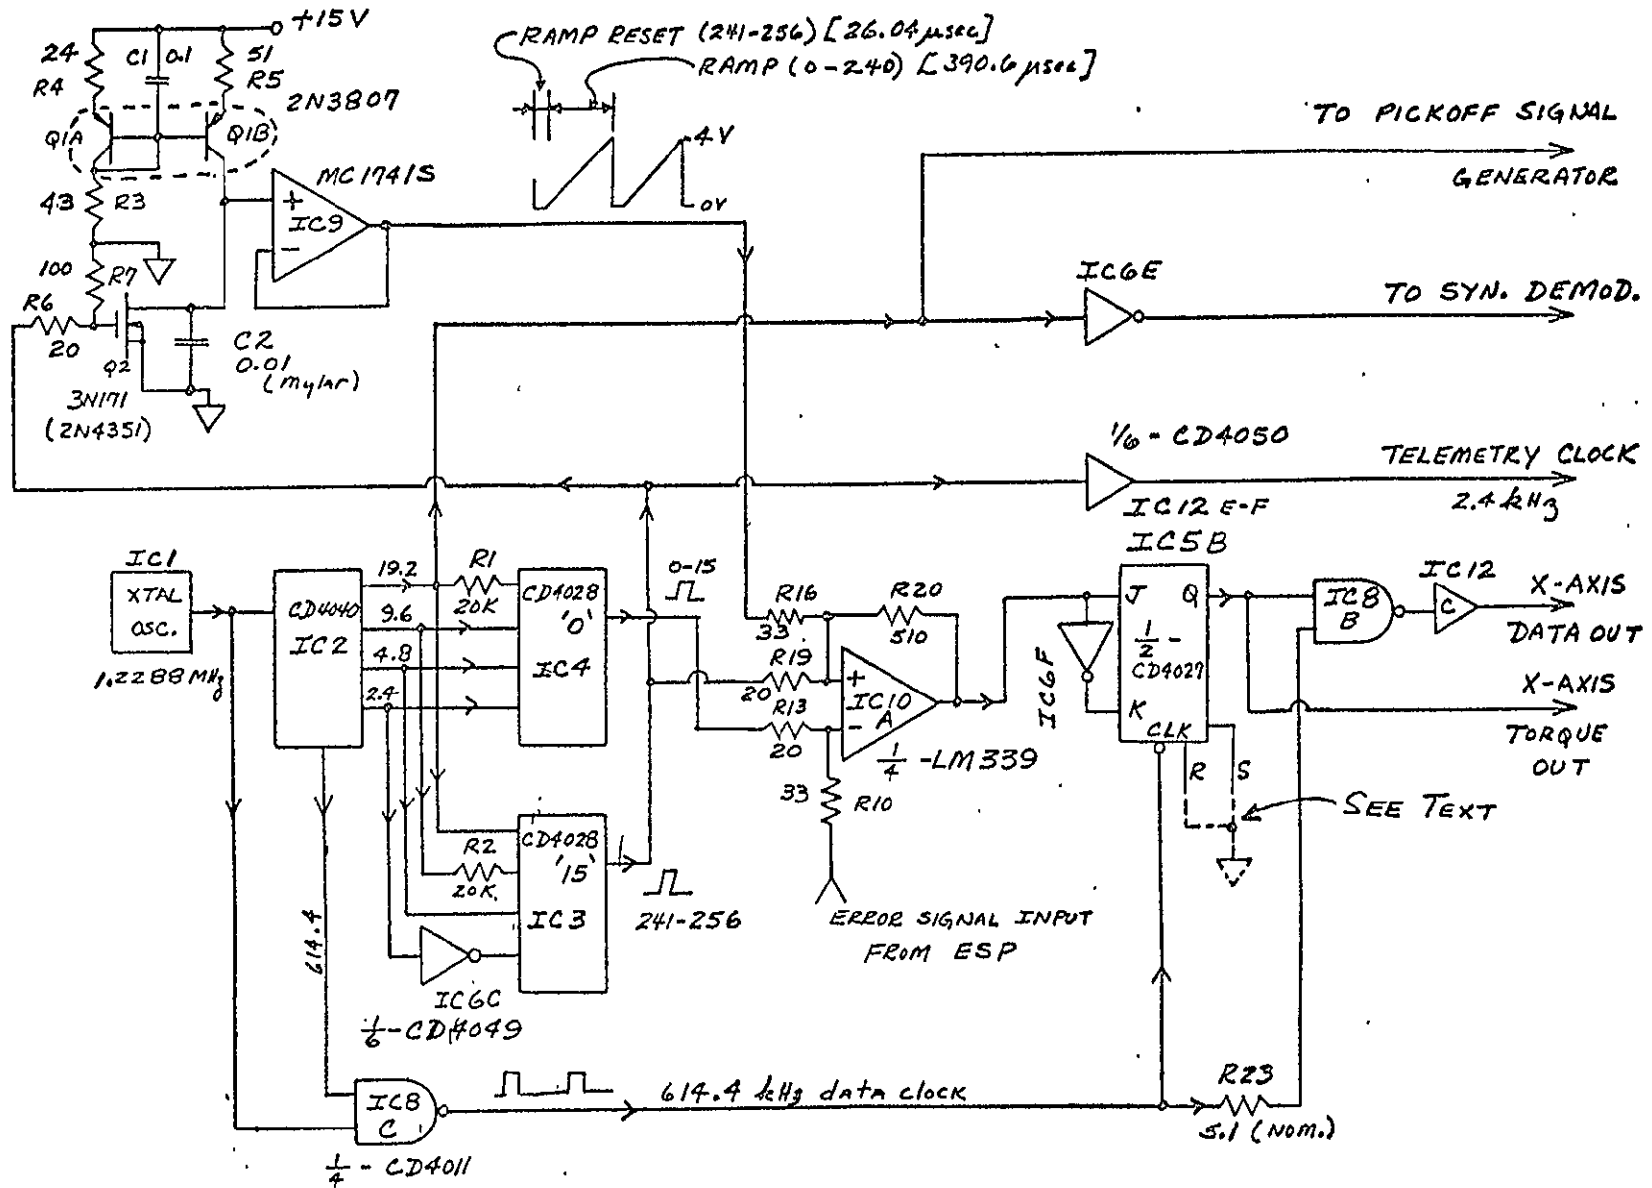 +15V
24
R4
C1
0.1
51
R5
2N3807
Q1A
Q1B
43
R3
100
R7
R6
20
Q2
3N171
(2N4351)
C2
0.01
(mylar)
MC1741S
+
IC9
-
RAMP RESET (241-256) [26.04 µsec]
RAMP (0-240) [390.6 µsec]
4V
0V
TO PICKOFF SIGNAL
GENERATOR
IC6E
TO SYN. DEMOD.
1/6 - CD4050
IC12 E-F
TELEMETRY CLOCK
2.4 kHz
IC1
XTAL
OSC.
1.2288 MHz
CD4040
IC2
19.2
9.6
4.8
2.4
R1
20K
CD4028
'0'
IC4
0-15
R2
20K
CD4028
'15'
IC3
241-256
IC6C
1/6-CD4049
614.4
IC8
C
1/4 - CD4011
614.4 kHz data clock
R16
33
R19
20
R13
20
R20
510
+
IC10
A
-
1/4 -LM339
33
R10
ERROR SIGNAL INPUT
FROM ESP
IC5B
IC6F
J
Q
1/2 -
CD4027
K
CLK
R
S
SEE TEXT
IC8
B
IC12
C
X-AXIS
DATA OUT
X-AXIS
TORQUE
OUT
R23
5.1 (NOM.)